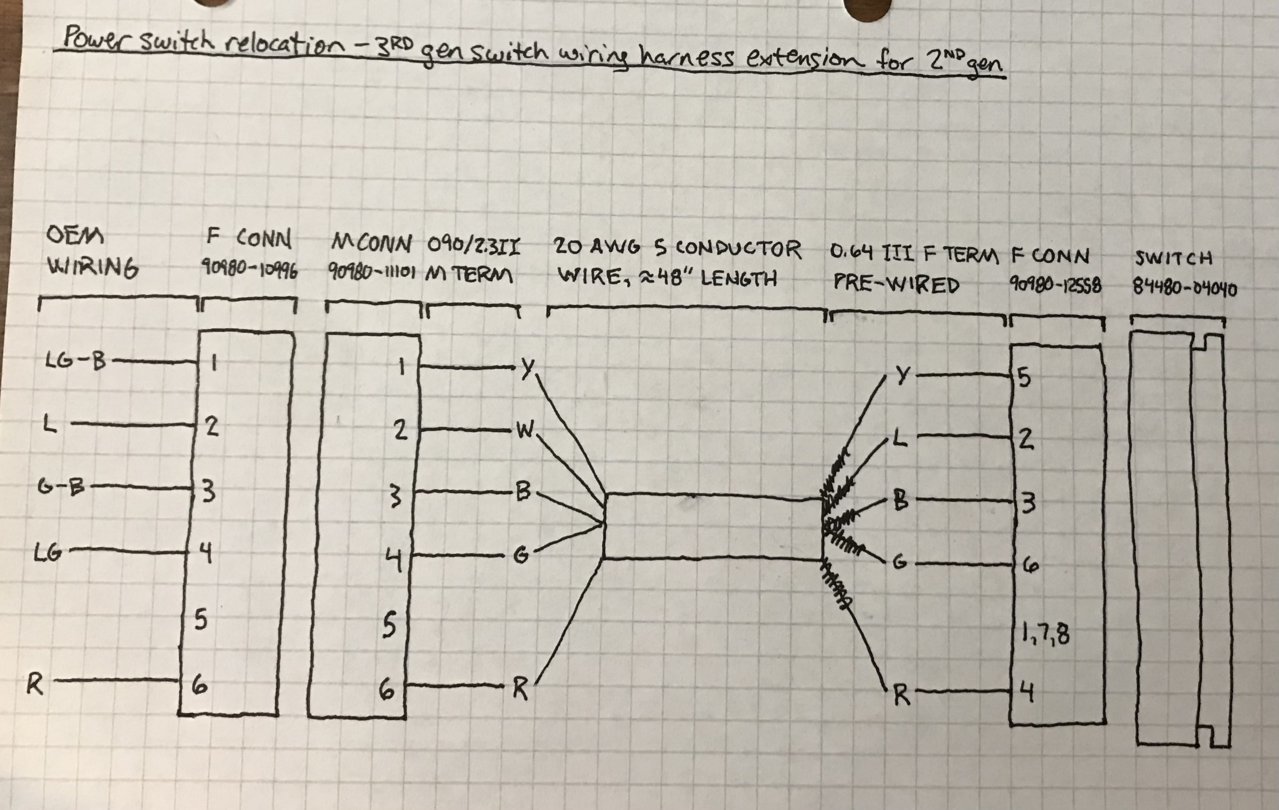 Power switch relocation - 3RD gen switch wiring harness extension for 2ND gen
OEM WIRING
F CONN 90980-10996
M CONN 90980-11101
090/2.3II M TERM
20 AWG 5 CONDUCTOR WIRE, ≈48" LENGTH
0.64 III F TERM PRE-WIRED
F CONN 90980-12558
SWITCH 84480-04040
LG-B 1 1 Y Y 5
L 2 2 W L 2
G-B 3 3 B B 3
LG 4 4 G G 6
5 5 1,7,8
R 6 6 R R 4